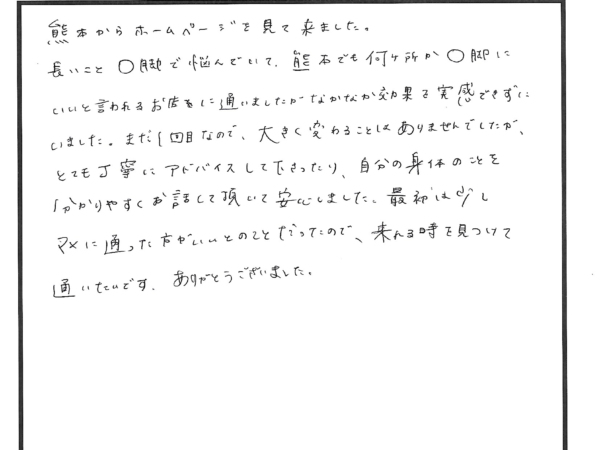 熊本からホームページを見て来ました。
長いこと〇脚で悩んでいて、熊本でも何ヶ所か〇脚に
いいと言われるお店をに通いましたがなかなか効果を実感できずに
いました。まだ1回目なので、大きく変わることはありませんでしたが、
とても丁寧にアドバイスして下さったり、自分の身体のことを
分かりやすくお話して頂いて安心しました。最初は少し
マメに通った方がいいとのことだったので、来れる時を見つけて
通いたいです。ありがとうございました。